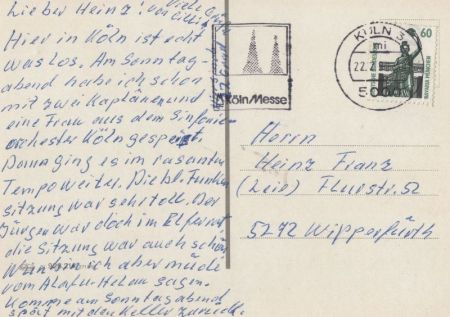 Lieber Heinz! Viele
Hier in Köln ist echt
was los. Am Sonntag-
abend habe ich schon
mit zwei Kaplänen und
eine Frau aus dem Sinfonie-
orchester Köln gespeist.
Dann ging es im rasanten
Tempo weiter. Die bl. Funken
sitzung war sehr toll. Der
Jürgen war doch im Elferrat
die Sitzung war auch schön
bin ich aber müde
vom Alaaf-Helau sagen.
Komme am Sonntagabend
spät mit den Keller zurück.
KölnMesse
KÖLN 3
mi
22.2.9
5000
60
Herrn
Heinz Franz
Flurstr. 52
5272 Wipperfürth